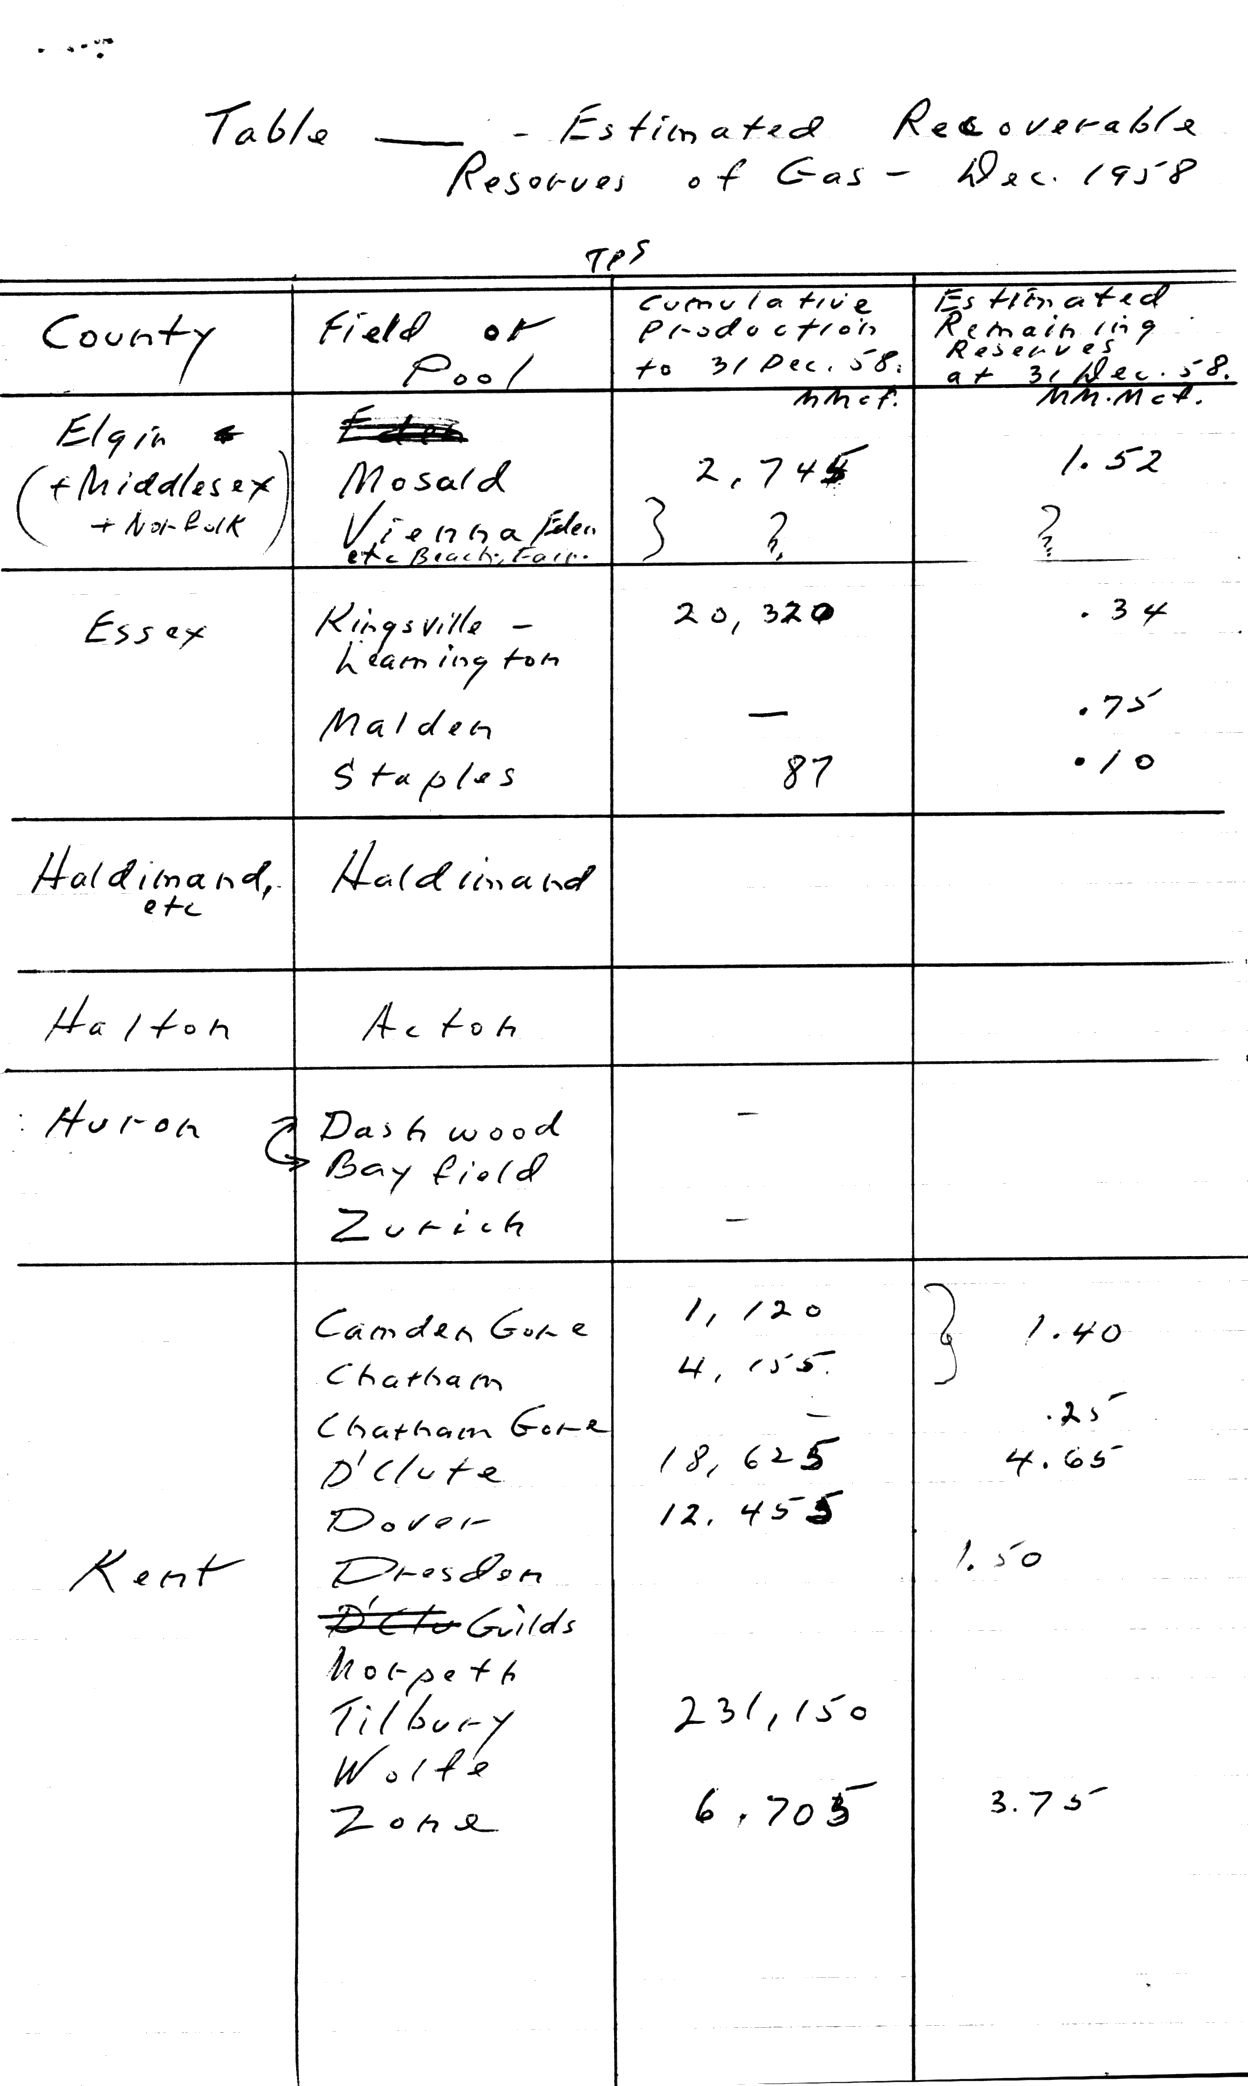 Table ___ - Estimated Recoverable
Reserves of Gas - Dec. 1958
TPS
County Field or Pool Cumulative Production to 31 Dec. 58. Estimated Remaining Reserves at 31 Dec. 58.
MMcf. MM.Mcf.
Elgin Eden
(+Middlesex Mosald 2,745 1.52
+ Norfolk) Vienna Eden } ? ?
etc Beach, Fair.
Essex Kingsville - 20,320 .34
Leamington
Malden — .75
Staples 87 .10
Haldimand, Haldimand
etc
Halton Acton
Huron Dashwood -
Bayfield
Zurich -
Camden Gore 1,120 } 1.40
Chatham 4,155
Chatham Gore - .25
D'Clute 18,625 4.65
Dover 12,455
Kent Dresden 1.50
D'Clu Guilds
Morpeth
Tilbury 231,150
Wolfe
Zone 6,705 3.75